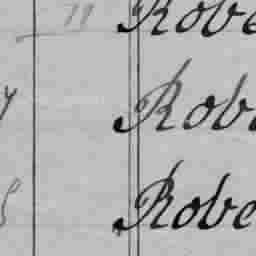 11 Robe
Rob
Robe